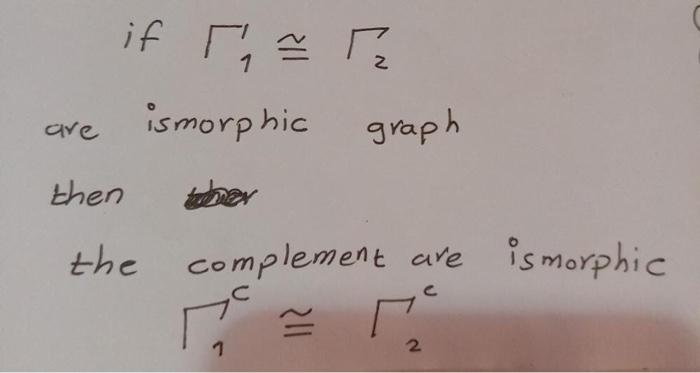 if Γ₁ ≅ Γ₂
are ismorphic graph
then
the complement are ismorphic
Γ₁ᶜ ≅ Γ₂ᶜ